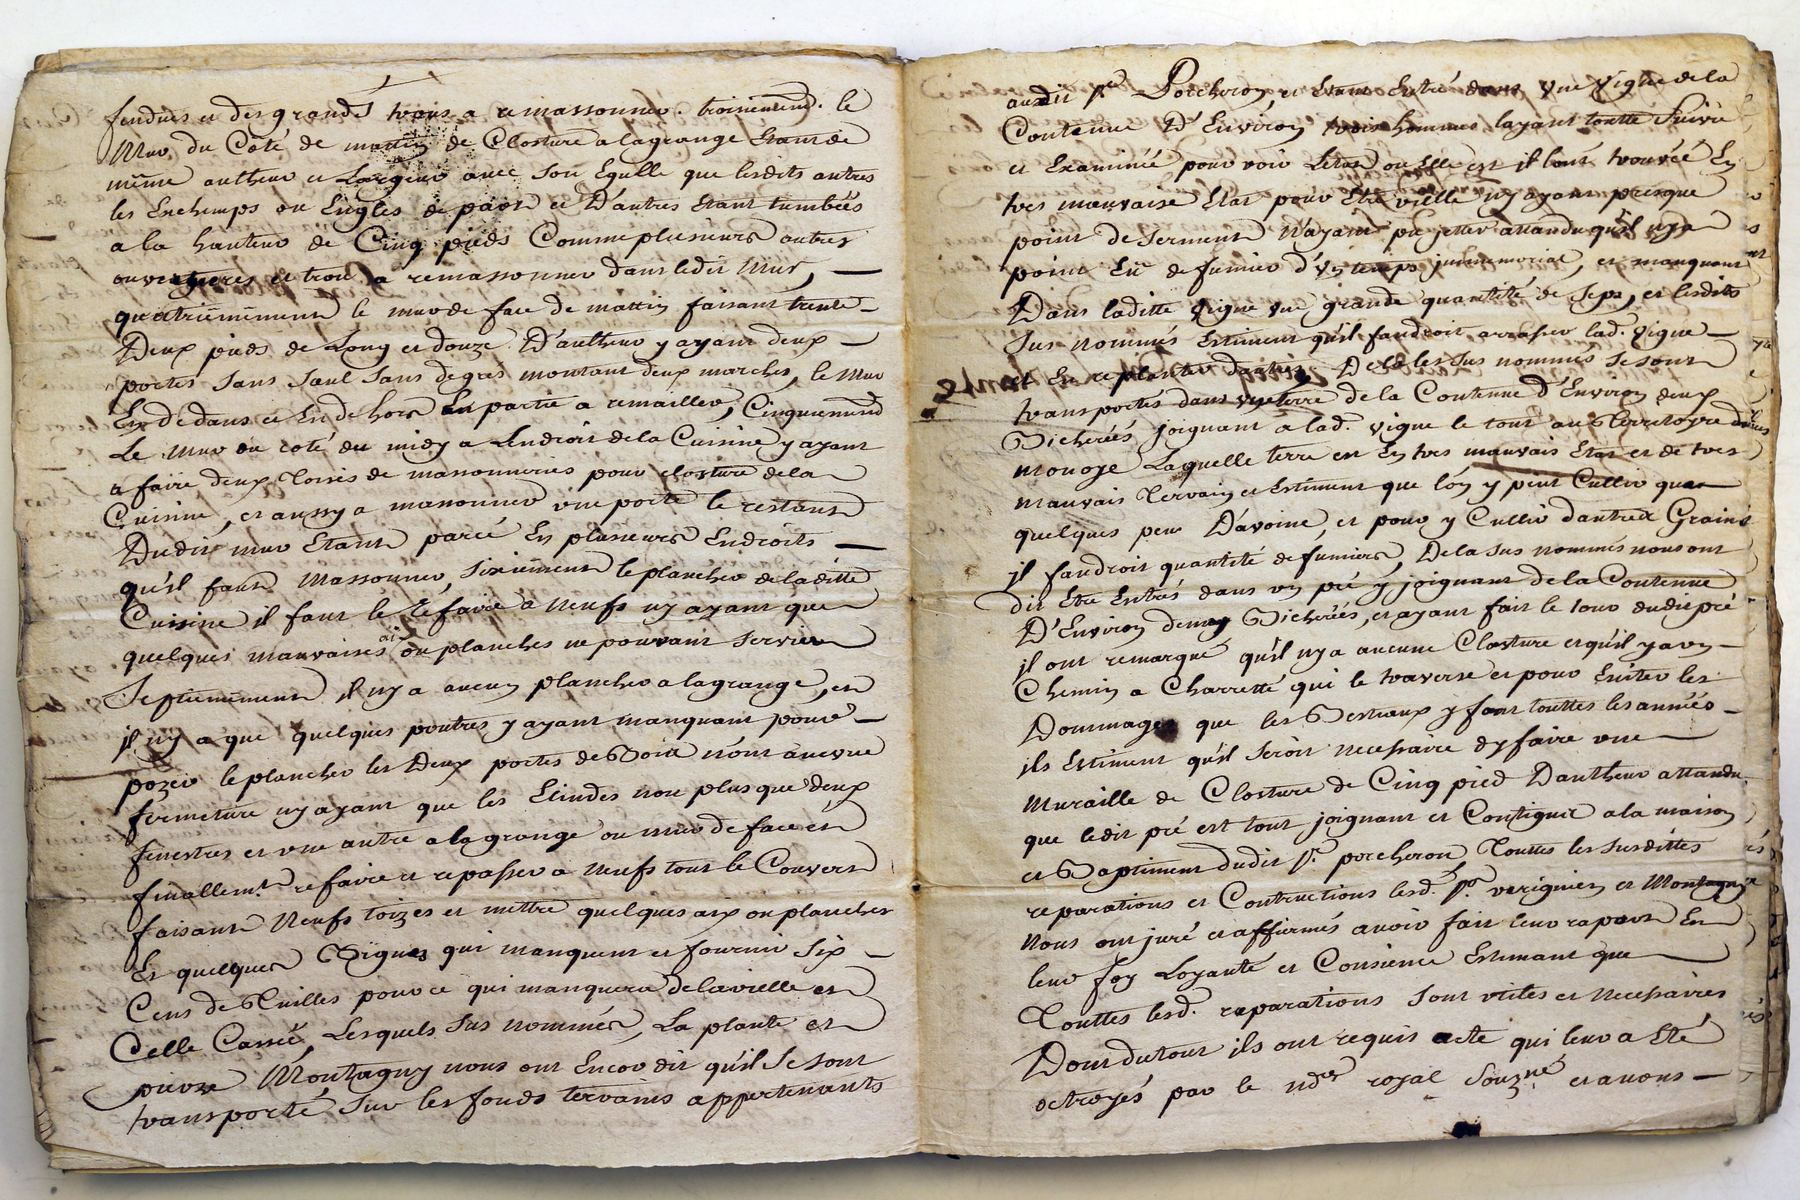 fendües et des grandes trous a remassonner. troisiemem.t le
Mur du Côté de mattin de Closture a lagrange Etant de
même autheur et Largeur avec son Egulle que lesdits autres
les Enchemps ou Engles de et D'autres Etant tumbées
a la hauteur de Cinq pieds Comme plusieurs autres
ouvertures et trou a remassonner dans ledit Mur,
quatriemement le mur de face de mattin faisant trente
Deux pieds de Long et douze D'autheur y ayant deux
portes sans Saul sans degres montant deux marches, le Mur
En de dans et En de hors En partie a remailler, Cinquiemem.t
Le Mur du coté du midy a Lendroit de la Cuisine y ayant
a faire deux Toises de massonneries pour closture de la
Cuisine, et aussy a massonner une porte le restant
Dudit mur Etant parcé En plusieurs Endroits
qu'il faut Massonner, Sixiemement le plancher de laditte
Cuisine il faut le Refaire a Neufs ny ayant que
quelques mauvaises aix ou planches ne pouvant servir
Septiemement il ny a aucun plancher a lagrange, et
il ny a que quelques poutres y ayant manquant pour
pozer le plancher les Deux portes de Bois n'ont aucune
fermeture ny ayant que les Elindes non plus que deux
fenestres et une autre a la grange ou mur de face et
finallem.t refaire et repasser a Neufs tout le Couvert
faisant Neufs toizes et mettre quelques aix ou planches
Et quelques Bignes qui manquent et fournir Six
Cens de Thuilles pour ce qui manquera de la vielle et
Celle Cassée, Lesquels sus nommés, La plante et
pierre Montagny nous ont Encor dit qu'il se sont
transporté sur les fonds terrains appertenants
audit Sr Porcheron, et Etant Entré dans une Vigne de la
Contenue D'Environ trois hommes, layant toutte Suivie
et Examinée pour voir Letat ou Elle est il lont trouvéé En
tres mauvaise Etat pour Etre vielle ny ayant presque
point de serment N'ayant pû jetter attandu qu'il ny a
point Eü de fumier d'un temps jmmemorial, et manquant
Dans laditte vigne une grande quantité de seps, et lesdits
Sus nommés Estiment qu'il faudroit arracher lad. vigne
et En replanter d'autres, Dela les sus nommés se sont
transportes dans une terre de la Contenue d'Environ deux
Bicherées joignant a lad. vigne le tout au Territoyre
monoye Laquelle terre est En tres mauvais Etat et de tres
mauvais Terrain et Estiment que lon y peut Cultiv que
quelques peu D'avoine, et pour y Cultiv dautres Grains
jl faudroit quantité de fumiers, Dela sus nommés nous ont
dit Etre Entrés dans un pré y joignant de la Contenue
D'Environ demy Bicherées, et ayant fait le tour dudit pré
jl ont remarqué qu'il ny a aucune Closture et qu'il y a un
Chemin a Charrette qui le traverse et pour Eviter les
Dommages que les Bestiaux y font touttes les années
ils Estiment qu'il seroit necessaire dy faire une
Muraille de Closture de Cinq pied D'autheur attandu
que ledit pré est tout joignant et Contigue a la maison
et Baptiment dudit Sr. porcheron Touttes les susdittes
reparations et Contructions lesd. Sr. verignier et Montagny
Nous ont juré et affirmés avoir fait leur raport En
leur foy Loyauté et Consience Estimant que
Touttes lesd. reparations sont utiles et necessaires
Dont du tout ils ont requis acte qui leur a Eté
octroyés par le nore royal Souzné et avons